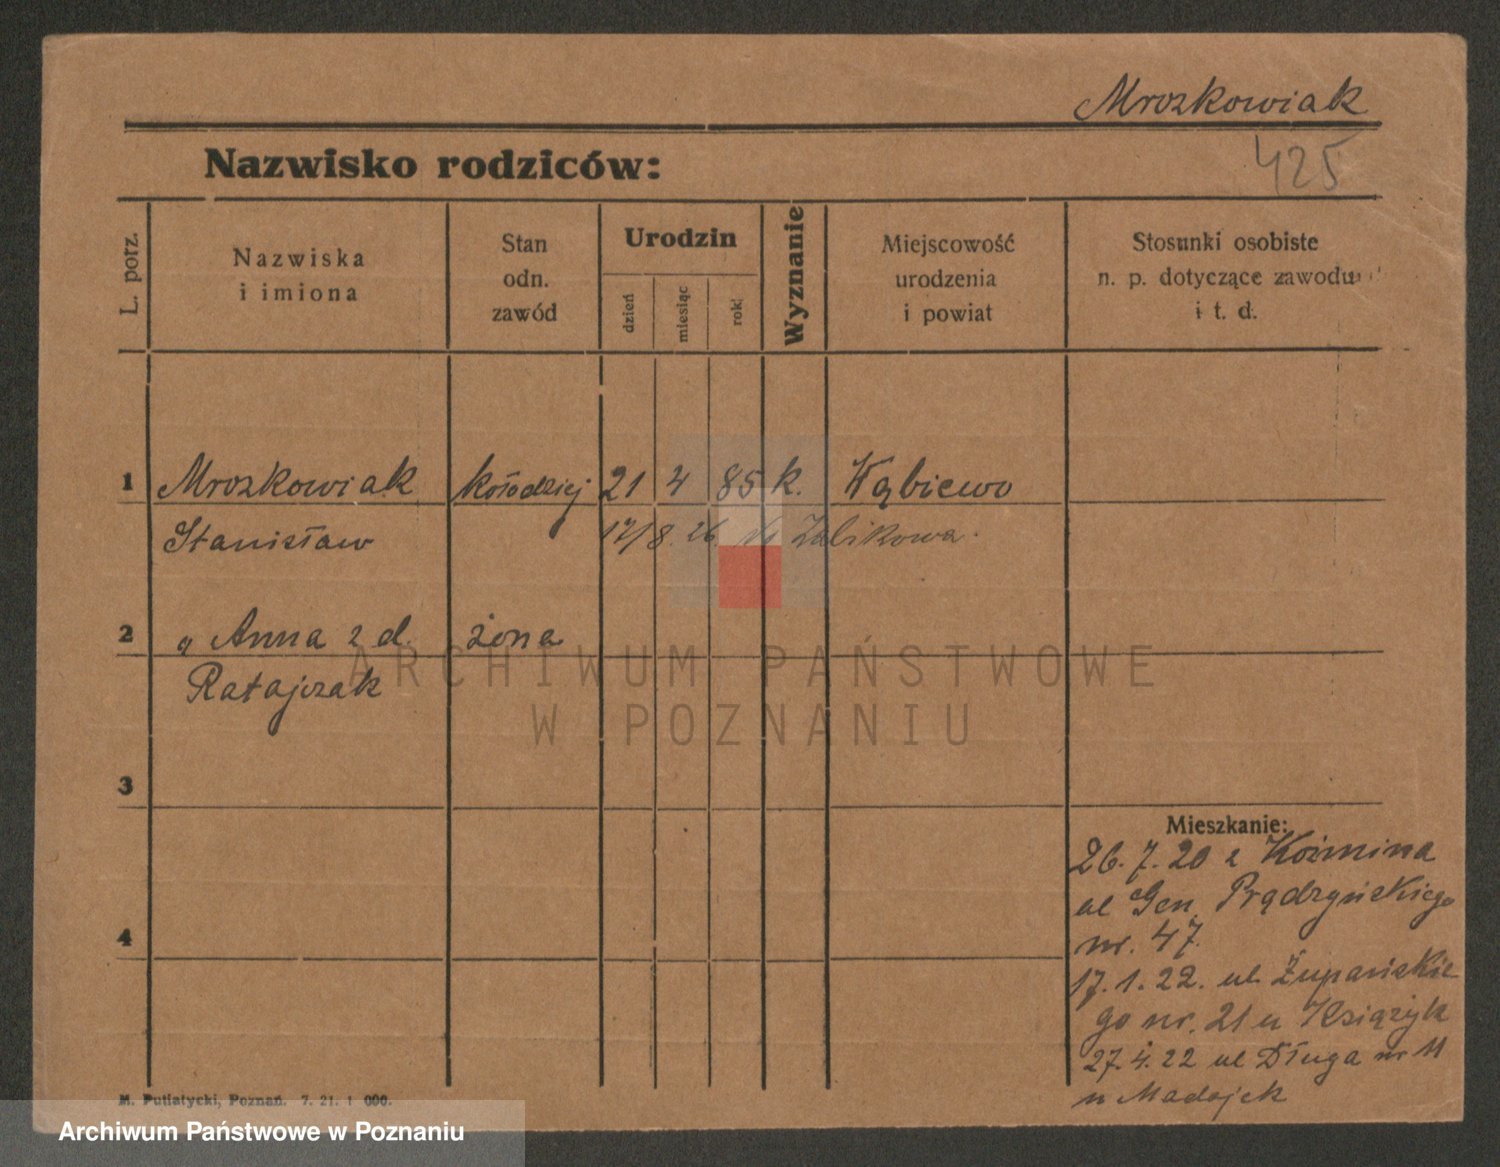 Mrozkowiak
425
Nazwisko rodziców:
L. porz.
Nazwiska
i imiona
Stan
odn.
zawód
Urodzin
dzień
miesiąc
rok
Wyznanie
Miejscowość
urodzenia
i powiat
Stosunki osobiste
n. p. dotyczące zawodu
i t. d.
1 Mrozkowiak kołodziej 21 4 85 k. Wąbiewo
Stanisław 17/8. 26. do Żabikowa.
2 " Anna z d. żona
Ratajczak
3
4
Mieszkanie:
26. 7. 20 z Koźmina
ul Gen. Prądzyńskiego
nr. 47.
17. 1. 22. ul. Żupańskie
go nr. 21 u Książyk
27. 4. 22 ul Długa nr 11
u Madajek
M. Putiatycki, Poznań. 7. 21. 1 000.
ARCHIWUM PAŃSTWOWE
W POZNANIU
Archiwum Państwowe w Poznaniu